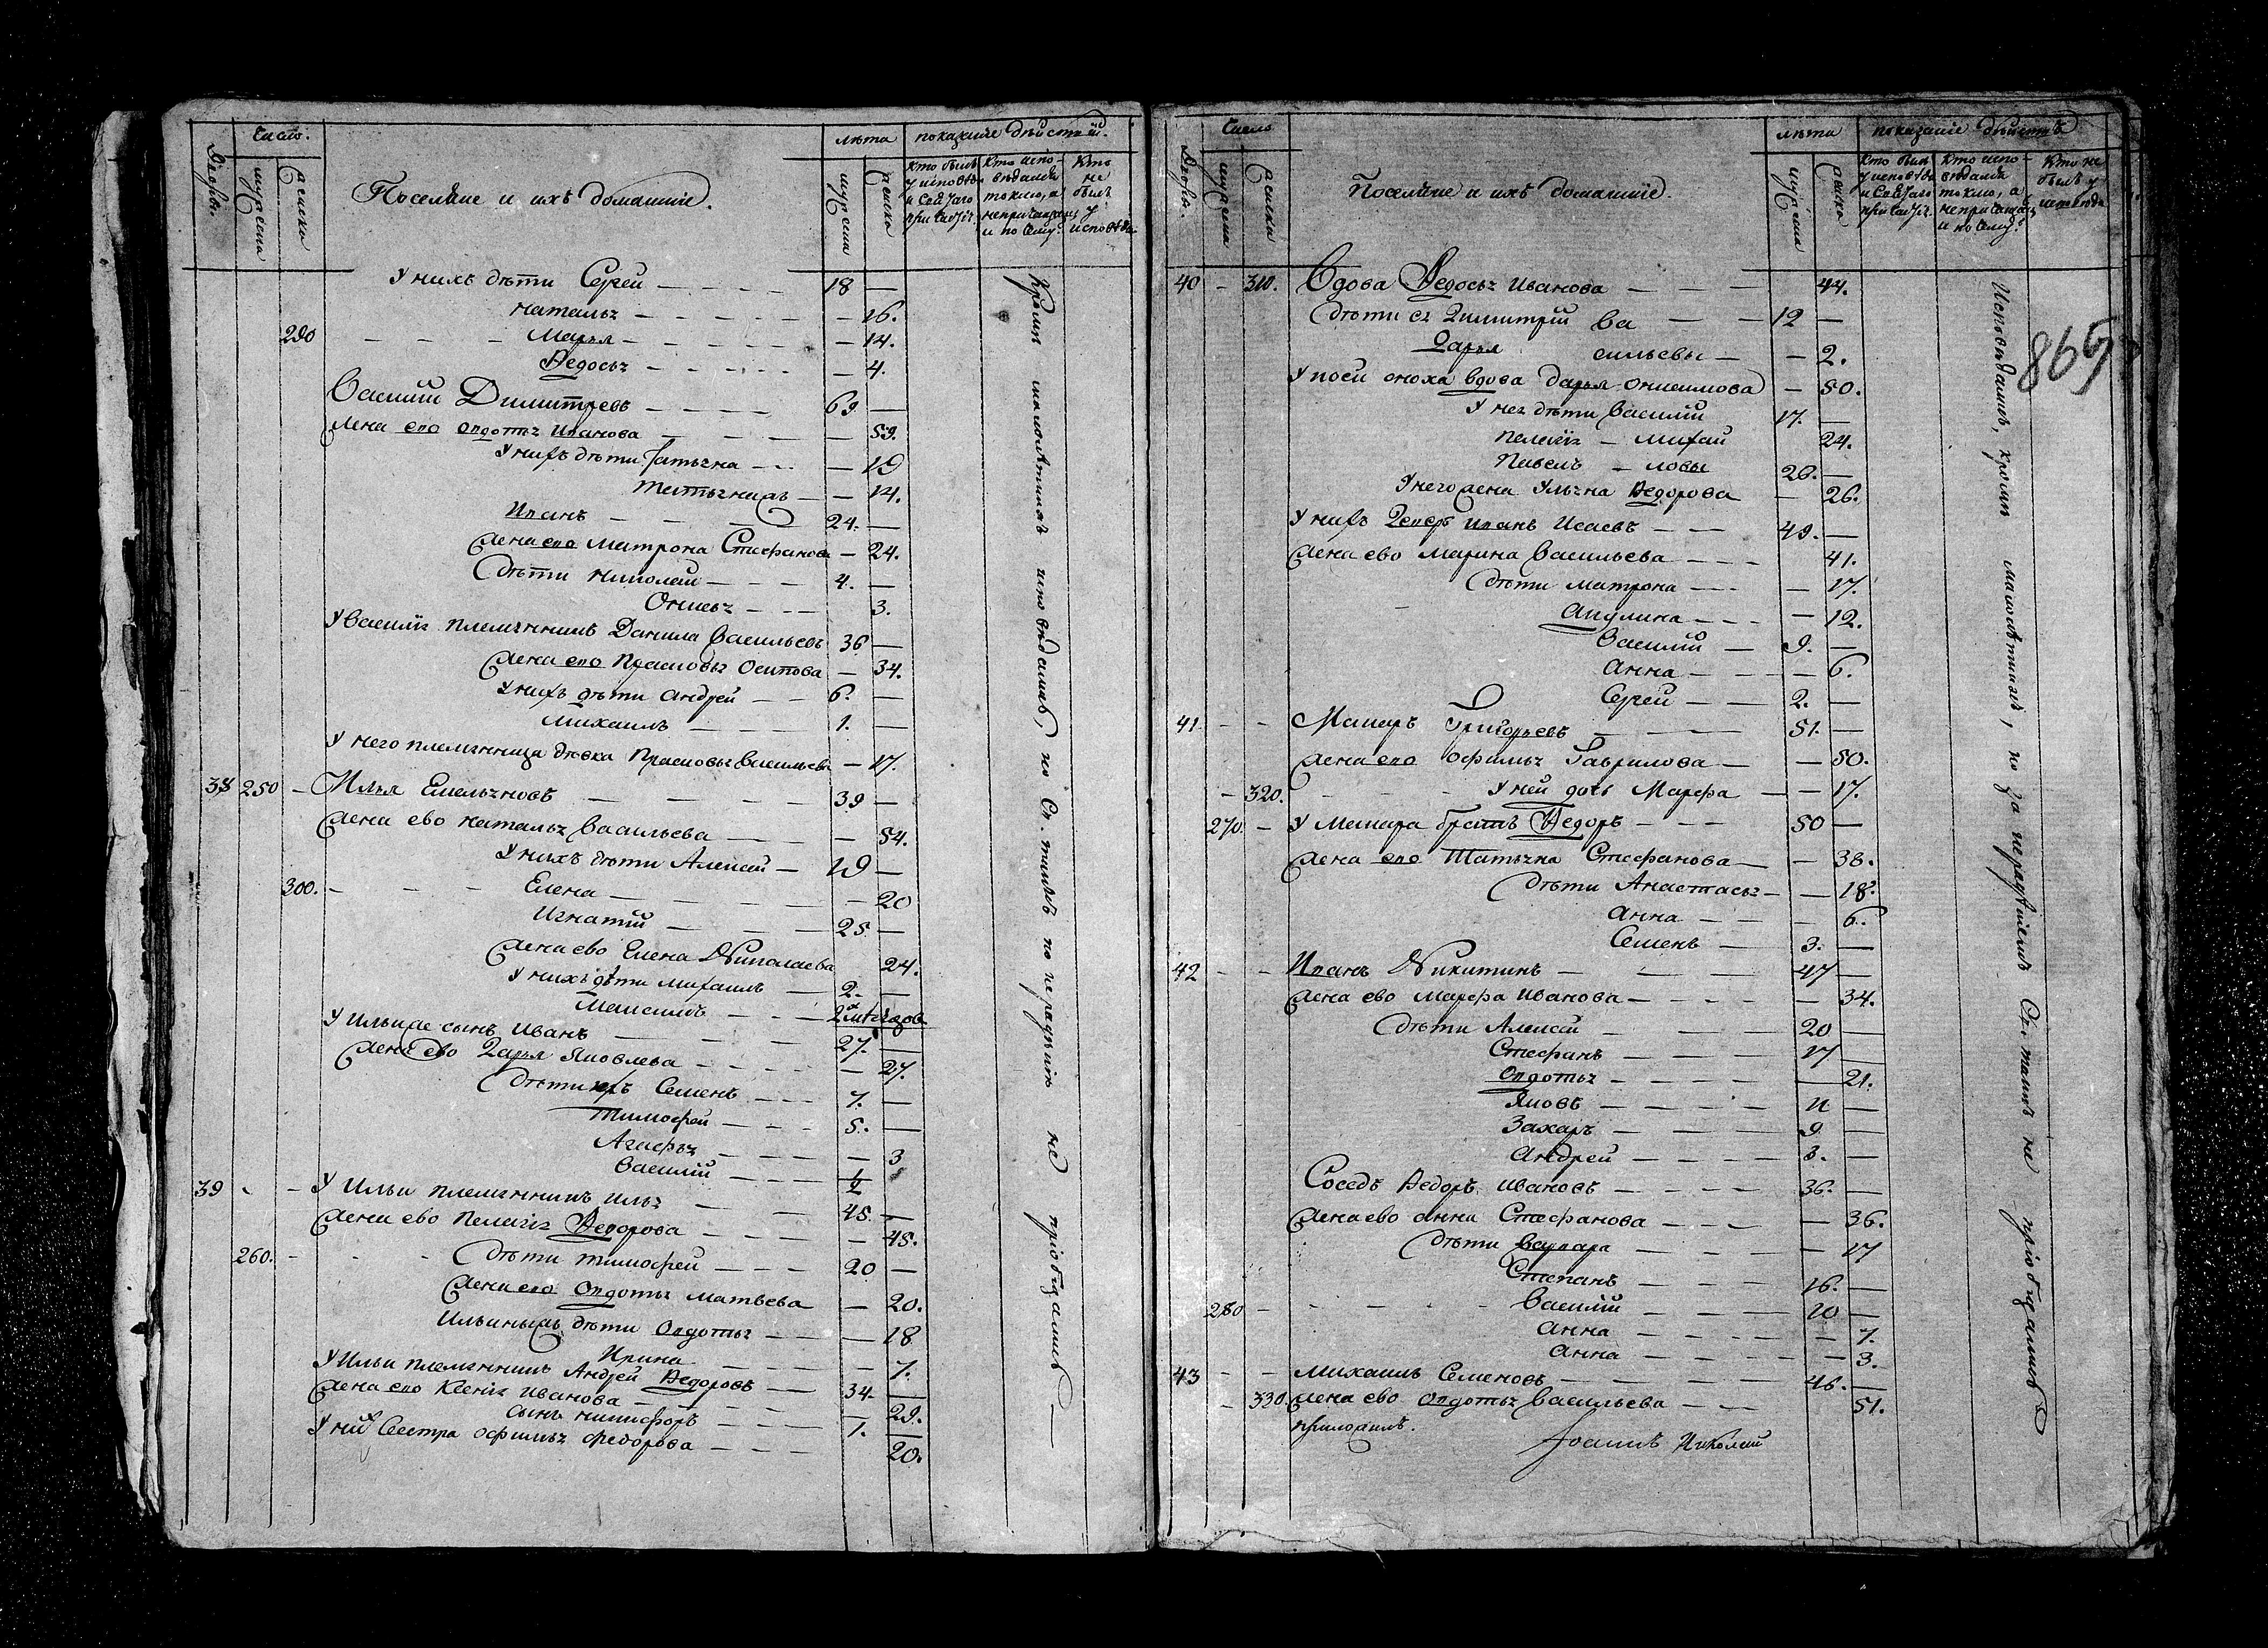 Число.
лѣта
показаніе дѣйствій.
Дворы.
мужеска
женска
Поселяне и ихъ домашніе.
мужеска
женска
Кто былъ у исповѣди и Святаго причастія.
Кто исповѣдался токмо, а не причащался и по чему.
Кто не былъ у исповѣди
У нихъ дѣти Сергей — 18 —
Наталья — 16.
290 Марья — 14.
Ѳедосья — 4.
Василий Димитревъ 69 —
Жена ево Овдотья Иванова — 59.
У нихъ дѣти Татьяна — 19
Татьяна жъ — 14.
Иванъ 24. —
Жена ево Матрона Стефанова — 24.
Дѣти Николай 4. —
Онисья 3.
У Василія племянникъ Данила Васильевъ 36 —
Жена ево Прасковья Осипова — 34.
У нихъ дѣти Андрей 6. —
Михаилъ 1. —
У него племянница дѣвка Прасковья Васильева — 17.
38 250 — Илья Емельяновъ 39 —
Жена ево Наталья Васильева — 54.
У нихъ дѣти Алексѣй 19 —
300. Елена — 20
Игнатий 25 —
Жена ево Елена Николаева 24.
У нихъ дѣти Михаилъ 2. —
Максимъ
У Ильи же сынъ Иванъ 27. —
Жена ево Дарья Яковлева — 27.
Дѣти ихъ Семенъ 7. —
Тимофей 5. —
Агафья — 3
Василий
39 У Ильи племянникъ Илья 45. —
Жена ево Пелагія Ѳедорова — 45.
260. Дѣти Тимофей 20 —
Жена ево Овдотья Матвеева — 20.
Ильины жъ дѣти Овдотья — 18
Ирина — 7.
У Ильи племянникъ Андрей Ѳедоровъ 34. —
Жена ево Ксенія Иванова — 29.
Сынъ Никифоръ 1. —
У ней сестра Офимья Федорова 20.
Кромѣ малолѣтнихъ исповѣдались, но Св. таинъ по нерадѣнію не пріобщались
Число
лѣта
показаніе дѣйствъ
Дворы.
мужеска
женска
Поселяне и ихъ домашніе.
мужеска
женска
Кто былъ у исповѣди и Святаго причастія.
Кто исповѣдался токмо, а не причащался и по чему.
Кто не былъ у исповѣди
865
40 — 310. Вдова Ѳедосья Иванова 44.
Дѣти ея Димитрий Ва 12 —
Дарья сильевы — 2.
У ней сноха вдова Дарья Онисимова — 50.
У нея дѣти Василий 17. —
Пелагія — Михай 24.
Павелъ — ловы 26. —
У него жена Ульяна Ѳедорова — 26.
У нихъ Иванъ Исаевъ 49. —
Жена ево Марина Васильева 41.
Дѣти Матрона — 17.
Акулина — 12.
Василий 9. —
Анна — 6.
Сергей 2. —
41 Макаръ Григорьевъ 51. —
Жена ево Офимья Гаврилова — 50.
— 320. У ней дочь Марфа — 17.
270 — У Макара братъ Ѳедоръ 50 —
Жена ево Татьяна Стефанова — 38.
Дѣти Анастасья — 18.
Анна — 6.
Семенъ 3. —
42 Иванъ Никитинъ 47 —
Жена ево Марфа Иванова — 34.
Дѣти Алексѣй 20 —
Стефанъ 17 —
Овдотья — 21.
Яковъ 11 —
Захаръ 9 —
Андрей 3. —
Соседъ Ѳедоръ Ивановъ 36. —
Жена ево Анна Стефанова — 36.
Дѣти Варвара — 17
Степанъ 16. —
280 Василий 10 —
Анна — 7.
Анна — 3.
43 Михаилъ Семеновъ 46. —
— 330. Жена ево Овдотья Васильева 51.
приложилъ.
Іоаннъ Николай
Исповѣдались, кромѣ малолѣтнихъ, но за нерадѣніемъ Св. таинъ не пріобщались